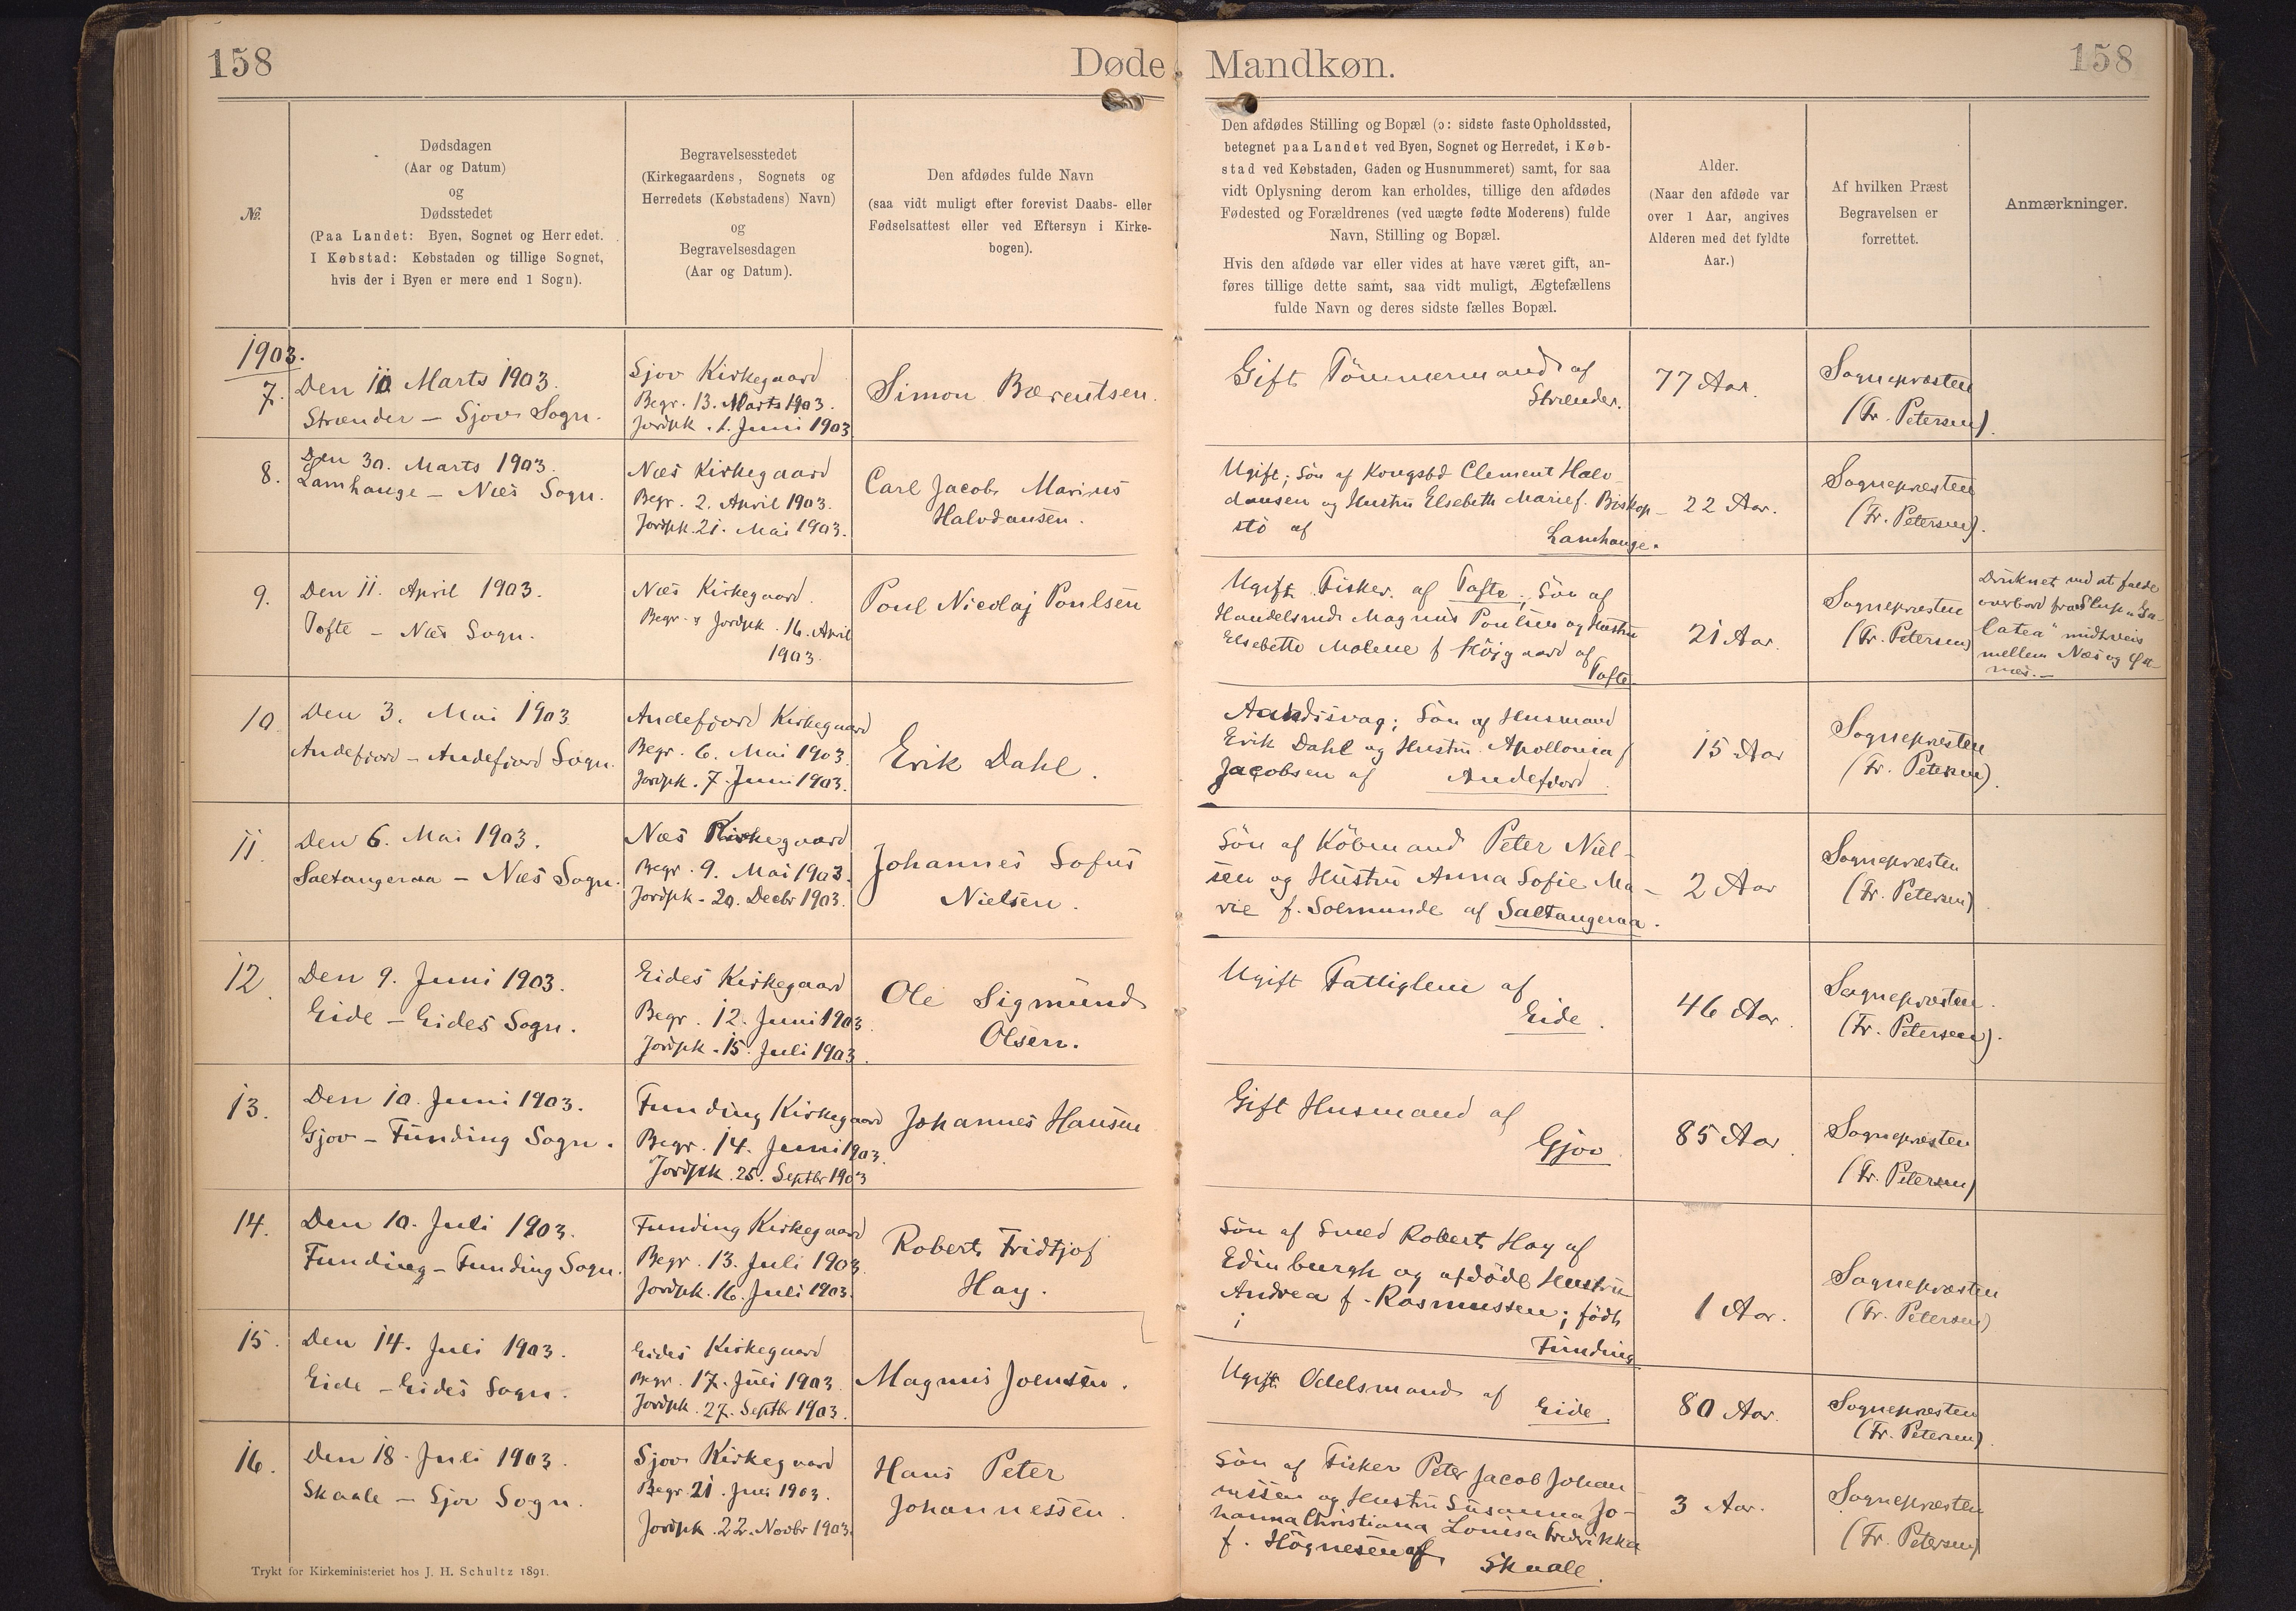 158
Døde
Mandkøn.
158
№.
Dødsdagen
(Aar og Datum)
og
Dødsstedet
(Paa Landet: Byen, Sognet og Herredet.
I Købstad: Købstaden og tillige Sognet,
hvis der i Byen er mere end 1 Sogn).
Begravelsesstedet
(Kirkegaardens, Sognets og
Herredets (Købstadens) Navn)
og
Begravelsesdagen
(Aar og Datum).
Den afdødes fulde Navn
(saa vidt muligt efter forevist Daabs- eller
Fødselsattest eller ved Eftersyn i Kirke-
bogen).
Den afdødes Stilling og Bopæl (ɔ: sidste faste Opholdssted,
betegnet paa Landet ved Byen, Sognet og Herredet, i Køb-
stad ved Købstaden, Gaden og Husnummeret) samt, for saa
vidt Oplysning derom kan erholdes, tillige den afdødes
Fødested og Forældrenes (ved uægte fødte Moderens) fulde
Navn, Stilling og Bopæl.
Hvis den afdøde var eller vides at have været gift, an-
føres tillige dette samt, saa vidt muligt, Ægtefællens
fulde Navn og deres sidste fælles Bopæl.
Alder.
(Naar den afdøde var
over 1 Aar, angives
Alderen med det fyldte
Aar.)
Af hvilken Præst
Begravelsen er
forrettet.
Anmærkninger.
1903.
7.
Den 10 Marts 1903.
Strænder – Sjov Sogn.
Sjov Kirkegaard
Begr. 13. Marts 1903.
Jordpk. 1. Juni 1903
Simon Bærentsen.
Gift Tømmermand af
Strænder.
77 Aar.
Sognepræsten
(Fr. Petersen).
8.
Den 30. Marts 1903.
Lamhauge – Næs Sogn.
Næs Kirkegaard
Begr. 2. April 1903.
Jordpk. 21. Mai 1903.
Carl Jacob Marius
Halvdansen.
Ugift; Søn af Kongsbd Clement Halv-
dansen og Hustru Elsebeth Marie f. Biskop-
stö af
Lamhauge.
22 Aar.
Sognepræsten
(Fr. Petersen).
9.
Den 11. April 1903.
Tofte – Næs Sogn.
Næs Kirkegaard.
Begr. & Jordpk. 16. April
1903.
Poul Nicolaj Poulsen
Ugift Fisker af Tofte; Søn af
Handelsmd. Magnus Poulsen og Hustru
Elsebette Malene f Höjgaard af
Tofte
21 Aar.
Sognepræsten
(Fr. Petersen)
Druknet ved at falde
overbord fra Slup „Ga-
latea" midtveis
mellem Næs og
næs. –
10
Den 3. Mai 1903
Andefjord – Andefjord Sogn.
Andefjord Kirkegaard
Begr. 6. Mai 1903.
Jordpk. 7. Juni 1903.
Erik Dahl.
Aandssvag; Søn af Husmand
Erik Dahl og Hustru Apollonia f
Jacobsen af Andefjord.
15 Aar
Sognepræsten
(Fr. Petersen).
11.
Den 6. Mai 1903.
Saltangeraa – Næs Sogn.
Næs Kirkegaard
Begr. 9. Mai 1903.
Jordpk. 20. Decbr 1903.
Johannes Sofus
Nielsen.
Søn af Købmand Peter Niel-
sen og Hustru Anna Sofie Ma-
rie f. Solmunde af Saltangeraa.
2 Aar
Sognepræsten
(Fr. Petersen)
12.
Den 9. Juni 1903.
Eide – Eides Sogn.
Eides Kirkegaard
Begr. 12. Juni 1903.
Jordpk. 15. Juli 1903.
Ole Sigmund
Olsen.
Ugift Fattiglem af
Eide.
46 Aar.
Sognepræsten.
(Fr. Petersen).
13.
Den 10. Juni 1903.
Gjov – Funding Sogn.
Funding Kirkegaard
Begr. 14. Juni 1903.
Jordpk. 25. Septbr 1903
Johannes Hansen
Gift Husmand af
Gjov
85 Aar.
Sognepræsten
(Fr. Petersen)
14.
Den 10. Juli 1903.
Funding – Funding Sogn.
Funding Kirkegaard
Begr. 13. Juli 1903.
Jordpk. 16. Juli 1903.
Robert Fridtjof
Hay.
Søn af Smed Robert Hay af
Edinburgh og afdöde Hustru
Andrea f. Rasmussen; född
i
Funding
1 Aar.
Sognepræsten
(Fr. Petersen)
15.
Den 14. Juli 1903.
Eide – Eides Sogn.
Eides Kirkegaard
Begr. 17. Juli 1903.
Jordpk. 27. Septbr 1903.
Magnus Joensen.
Ugift Odelsmand af
Eide.
80 Aar.
Sognepræsten
(Fr. Petersen).
16.
Den 18. Juli 1903.
Skaale – Sjov Sogn.
Sjov Kirkegaard
Begr. 21. Juli 1903.
Jordpk. 22. Novbr 1903.
Hans Peter
Johannessen.
Søn af Fisker Peter Jacob Johan-
nessen og Hustru Susanna Jo-
hanna Christiana Louisa Fredrikka
f. Högnesen af
Skaale.
3 Aar.
Sognepræsten
(Fr. Petersen)
Trykt for Kirkeministeriet hos J. H. Schultz 1891.